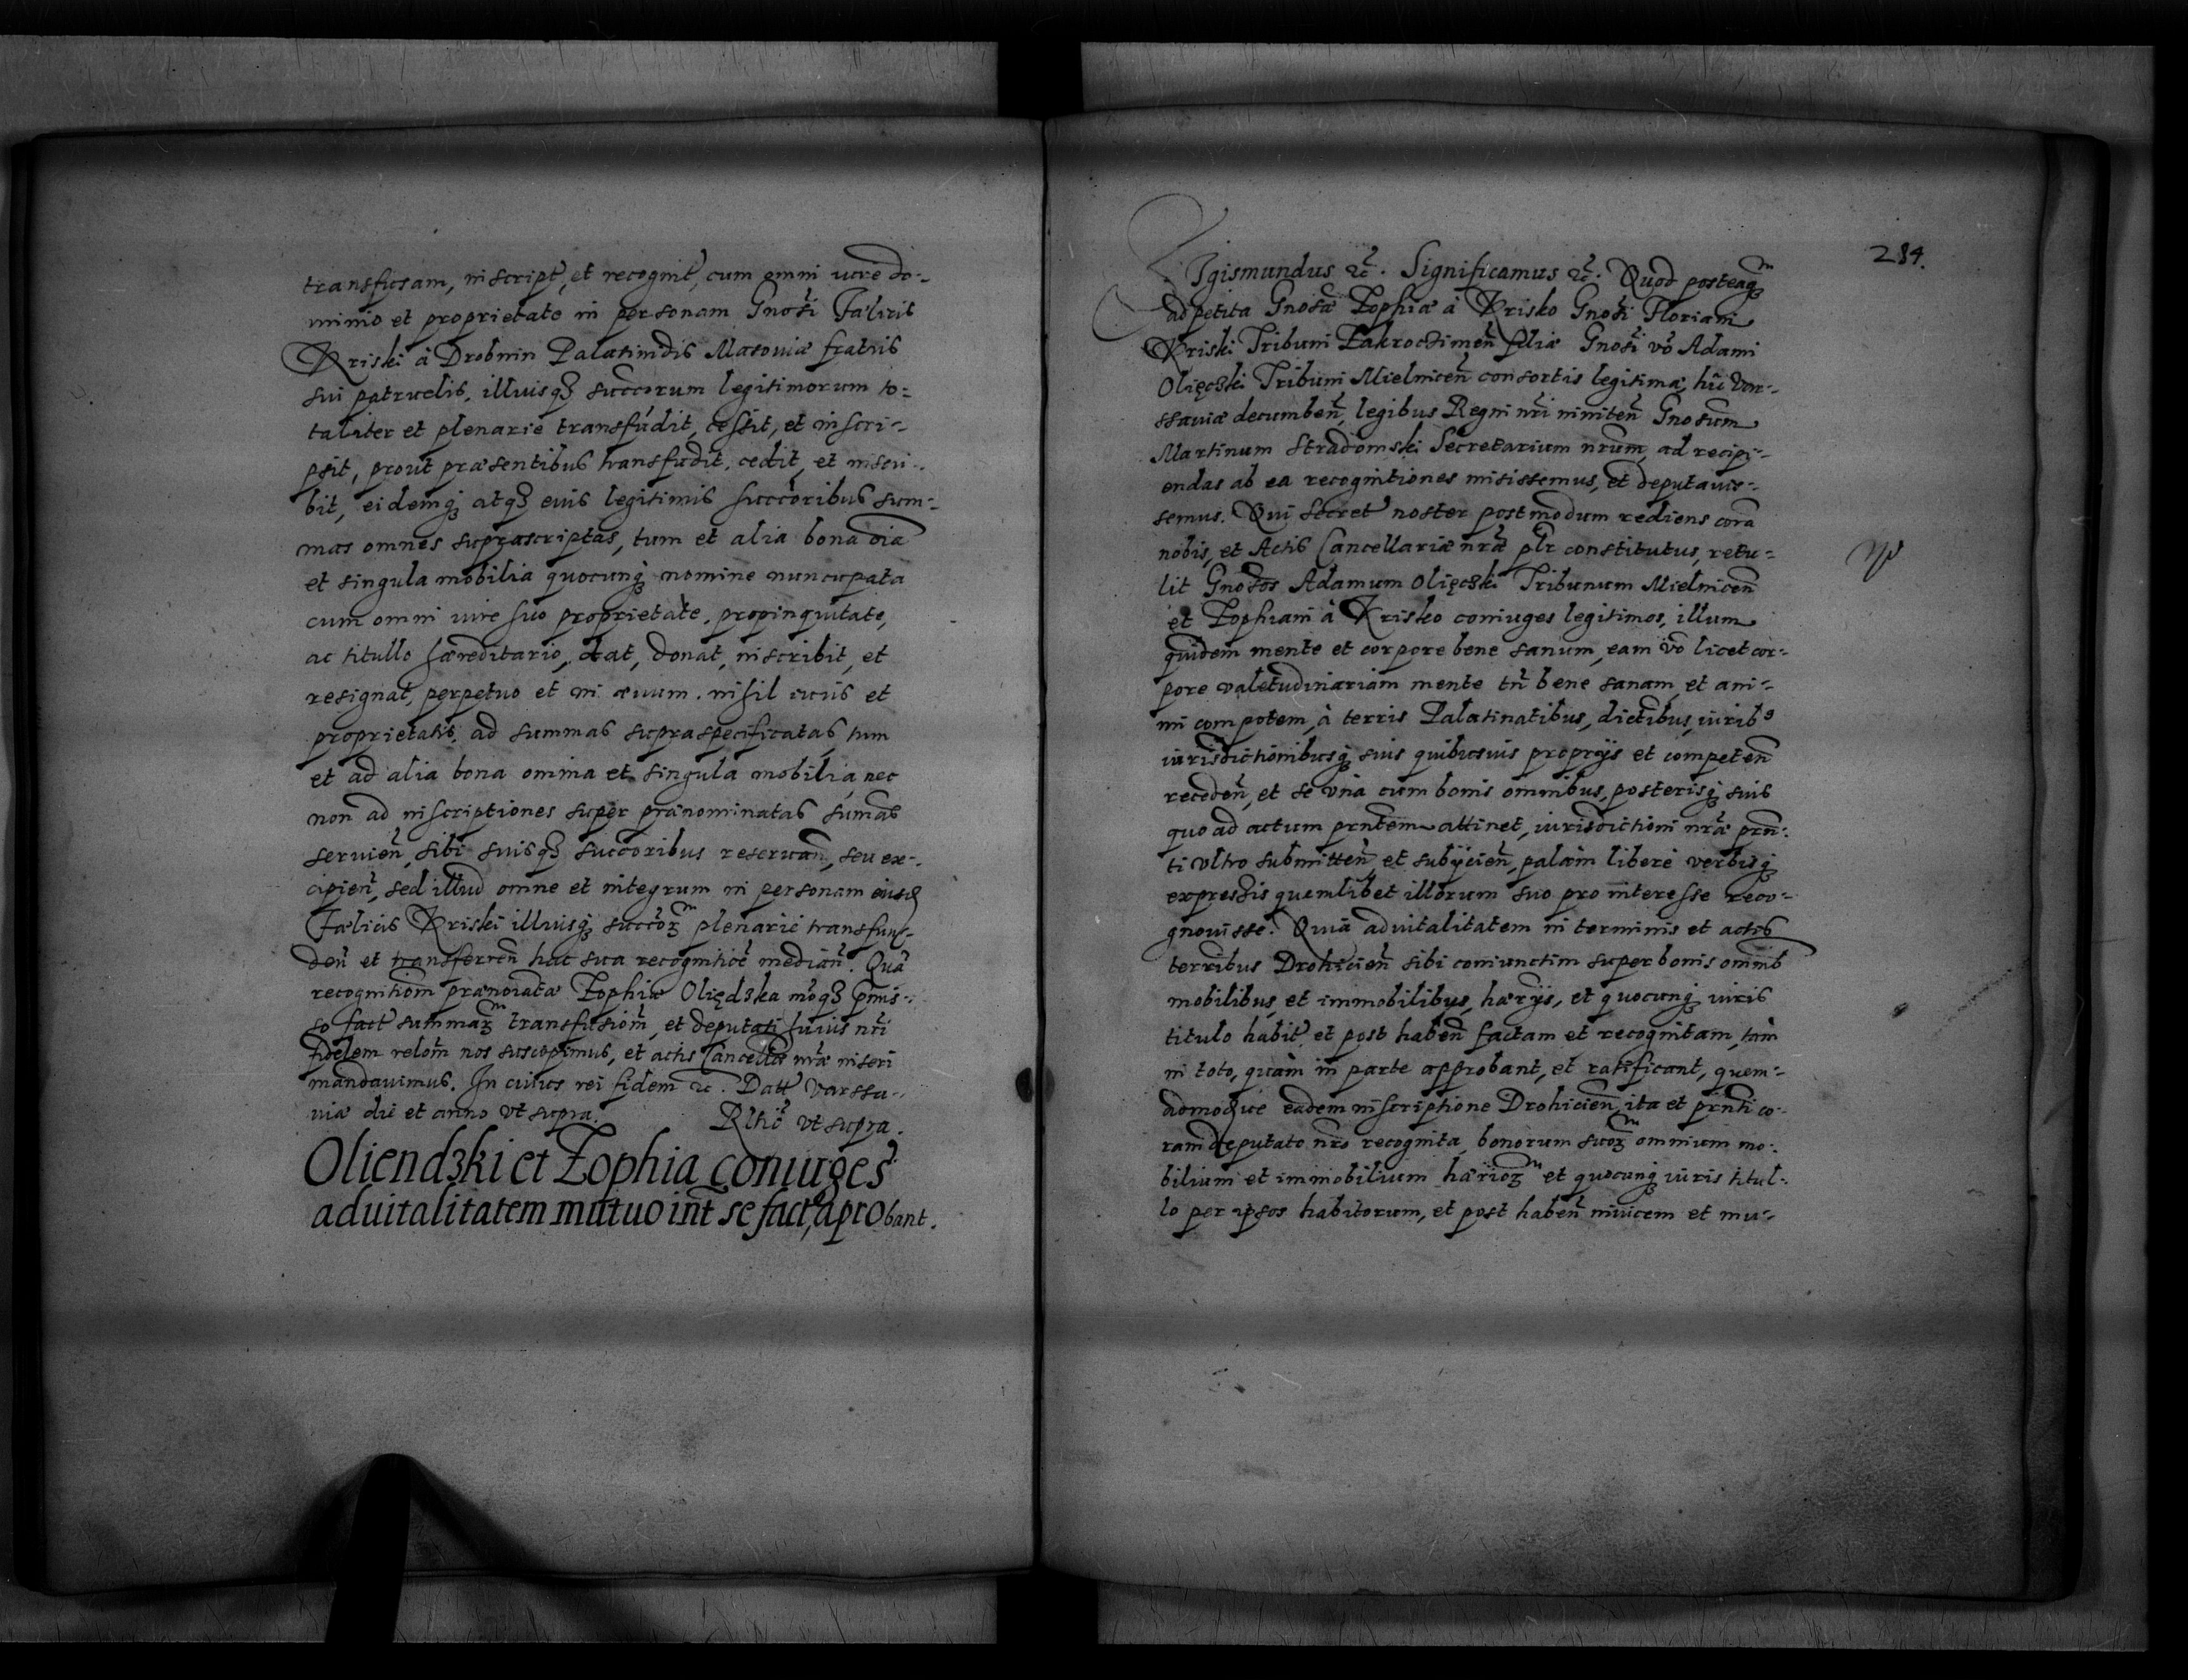 transfusam, inscript, et recognit, cum omni vero do-
minio et proprietate in personam Gnosi Fælicis
Kriski à Drobnin Palatinidis Masoviæ fratris
sui patruelis, illiusq3 succcorum legitimorum to=
taliter et plenarie transfudit, cessit, et inscri-
psit, prout præsentibus transfudit, cedit, et inscri-
bit, eidemq3 atq3 euis legitimis succoribus sum-
mas omnes suprascriptas, tum et alia bona oia
et singula mobilia quocunq3 nomine nuncupata
cum omni iure suo proprietate, propinquitate,
ac titullo hæreditario, dat, donat, inscribit, et
resignat, perpetuo et in æuum. nihil iuris et
proprietatis, ad summas supraspecificatas, tum
et ad alia bona omnia et singula mobilia, nec
non ad inscriptiones super prænominatas sumas
seruien, sibi suisq3 succoribus reseruan, seu ex-
cipien, sed illud omne et integrum in personam eiusd
Fælicis Kriski illiusq3 succorz plenarie transfun-
den et transferren hac sua recognitioe median. Quã
recognitiom prænoiatæ Zophiæ Oliędzka moq3 pmis-
so fact summarz transfusiom, et deputati huius nri
fidelem relom nos suscepimus, et actis Cancellæ nræ inseri
mandauimus. In cuius rei fidem 2c. Datt Varssa-
uiæ die et anno vt supra. Rltio vt supra.
Oliendzki et Zophia coniuges
aduitalitatem mutuo int se fact, aprobant.
284.
Sigismundus 2c. Significamus 2c. Quod posteaq
ad petita Gnosæ Zophiæ à Krisko Gnosi Floriani
Kriski Tribuni Zakroczimen filiæ Gnosi vo Adami
Olięczki Tribuni Mielnicen consortis legitimæ, hic Var-
ssauiæ decumben, legibus Regni nri initen Gnosum
Martinum Stradomski Secretarium nrum, ad recipi-
endas ab ea recognitiones misissemus, et deputauis-
semus. Qui Secret noster postmodum rediens cora
nobis, et Actis Cancellariæ nræ plr constitutus, retu-
lit Gnosos Adamum Olięczki Tribunum Mielnicen
et Zophiam à Krisko coniuges legitimos, illum
quidem mente et corpore bene sanum, eam vo licet cor-
pore valetudinariam mente tn bene sanam, et ani-
mi compotem, à terris Palatinatibus, dictibus, iurib9
iurisdictionibusq3 suis quibusuis proprijs et competen
receden, et se vnà cum bonis omnibus, posterisq3 suis
quo ad actum prntem attinet, iurisdictioni nræ prn-
ti vltro submitten, et subijcien, palam liberè verbisq3
expressis quemlibet illorum suo pro interesse reco-
gnouisse. Quià aduitalitatem in terminis et actis
terribus Drohicien sibi coniunctim super bonis omnib
mobilibus, et immobilibus, hærijs, et quocunq3 iuris
titulo habit, et post haben factam et recognitam, tam
in toto, quàm in parte approbant, et ratificant, quem-
admodue eadem inscriptione Drohicien, ita et prnti co-
ram deputato nro recognita, bonorum suorz omnium mo-
bilium et immobilium hæriorz et quocunq3 iuris titul-
lo per ipsos habitorum, et post haben inuicem et mu-